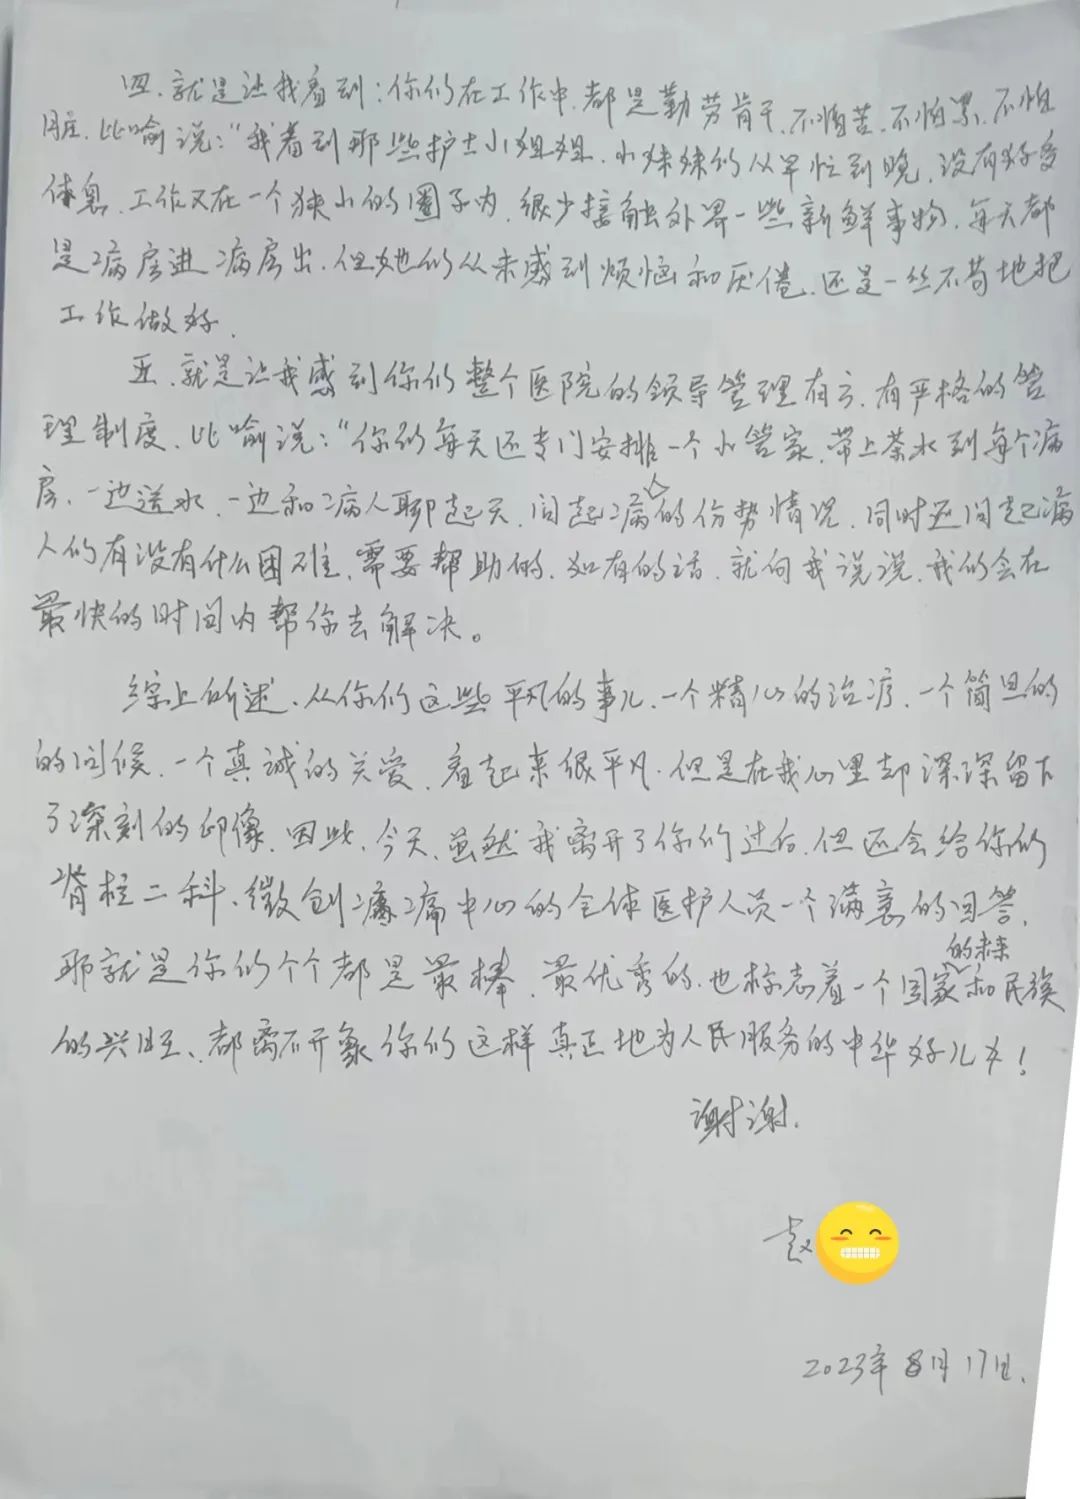 四、就是让我看到：你们在工作中，都是勤劳肯干，不怕苦、不怕累、不怕
脏，比喻说：“我看到那些护士小姐姐、小妹妹们从早忙到晚，没有好多
休息，工作又在一个狭小的圈子内，很少接触外界一些新鲜事物，每天都
是病房进病房出，但她们从未感到烦恼和厌倦，还是一丝不苟地把
工作做好。
五、就是让我感到你们整个医院的领导管理有方，有严格的管
理制度，比喻说：“你们每天还专门安排一个小管家，带上茶水到每个病
房，一边送水，一边和病人聊起天，问起病人的伤势情况，同时还问起病
人们有没有什么困难、需要帮助的，如有的话，就向我说说，我们会在
最快的时间内帮你去解决。
综上所述、从你们这些平凡的事儿、一个精心的治疗、一个简单的
的问候、一个真诚的关爱，看起来很平凡，但是在我心里却深深留下
了深刻的印像，因此，今天，虽然我离开了你们过后，但还会给你们
脊柱二科、微创疼痛中心的全体医护人员一个满意的回答，
那就是你们个个都是最棒、最优秀的，也标志着一个国家的未来和民族
的兴旺、都离不开象你们这样真正地为人民服务的中华好儿女！
谢谢.
赵
2023年8月17日.